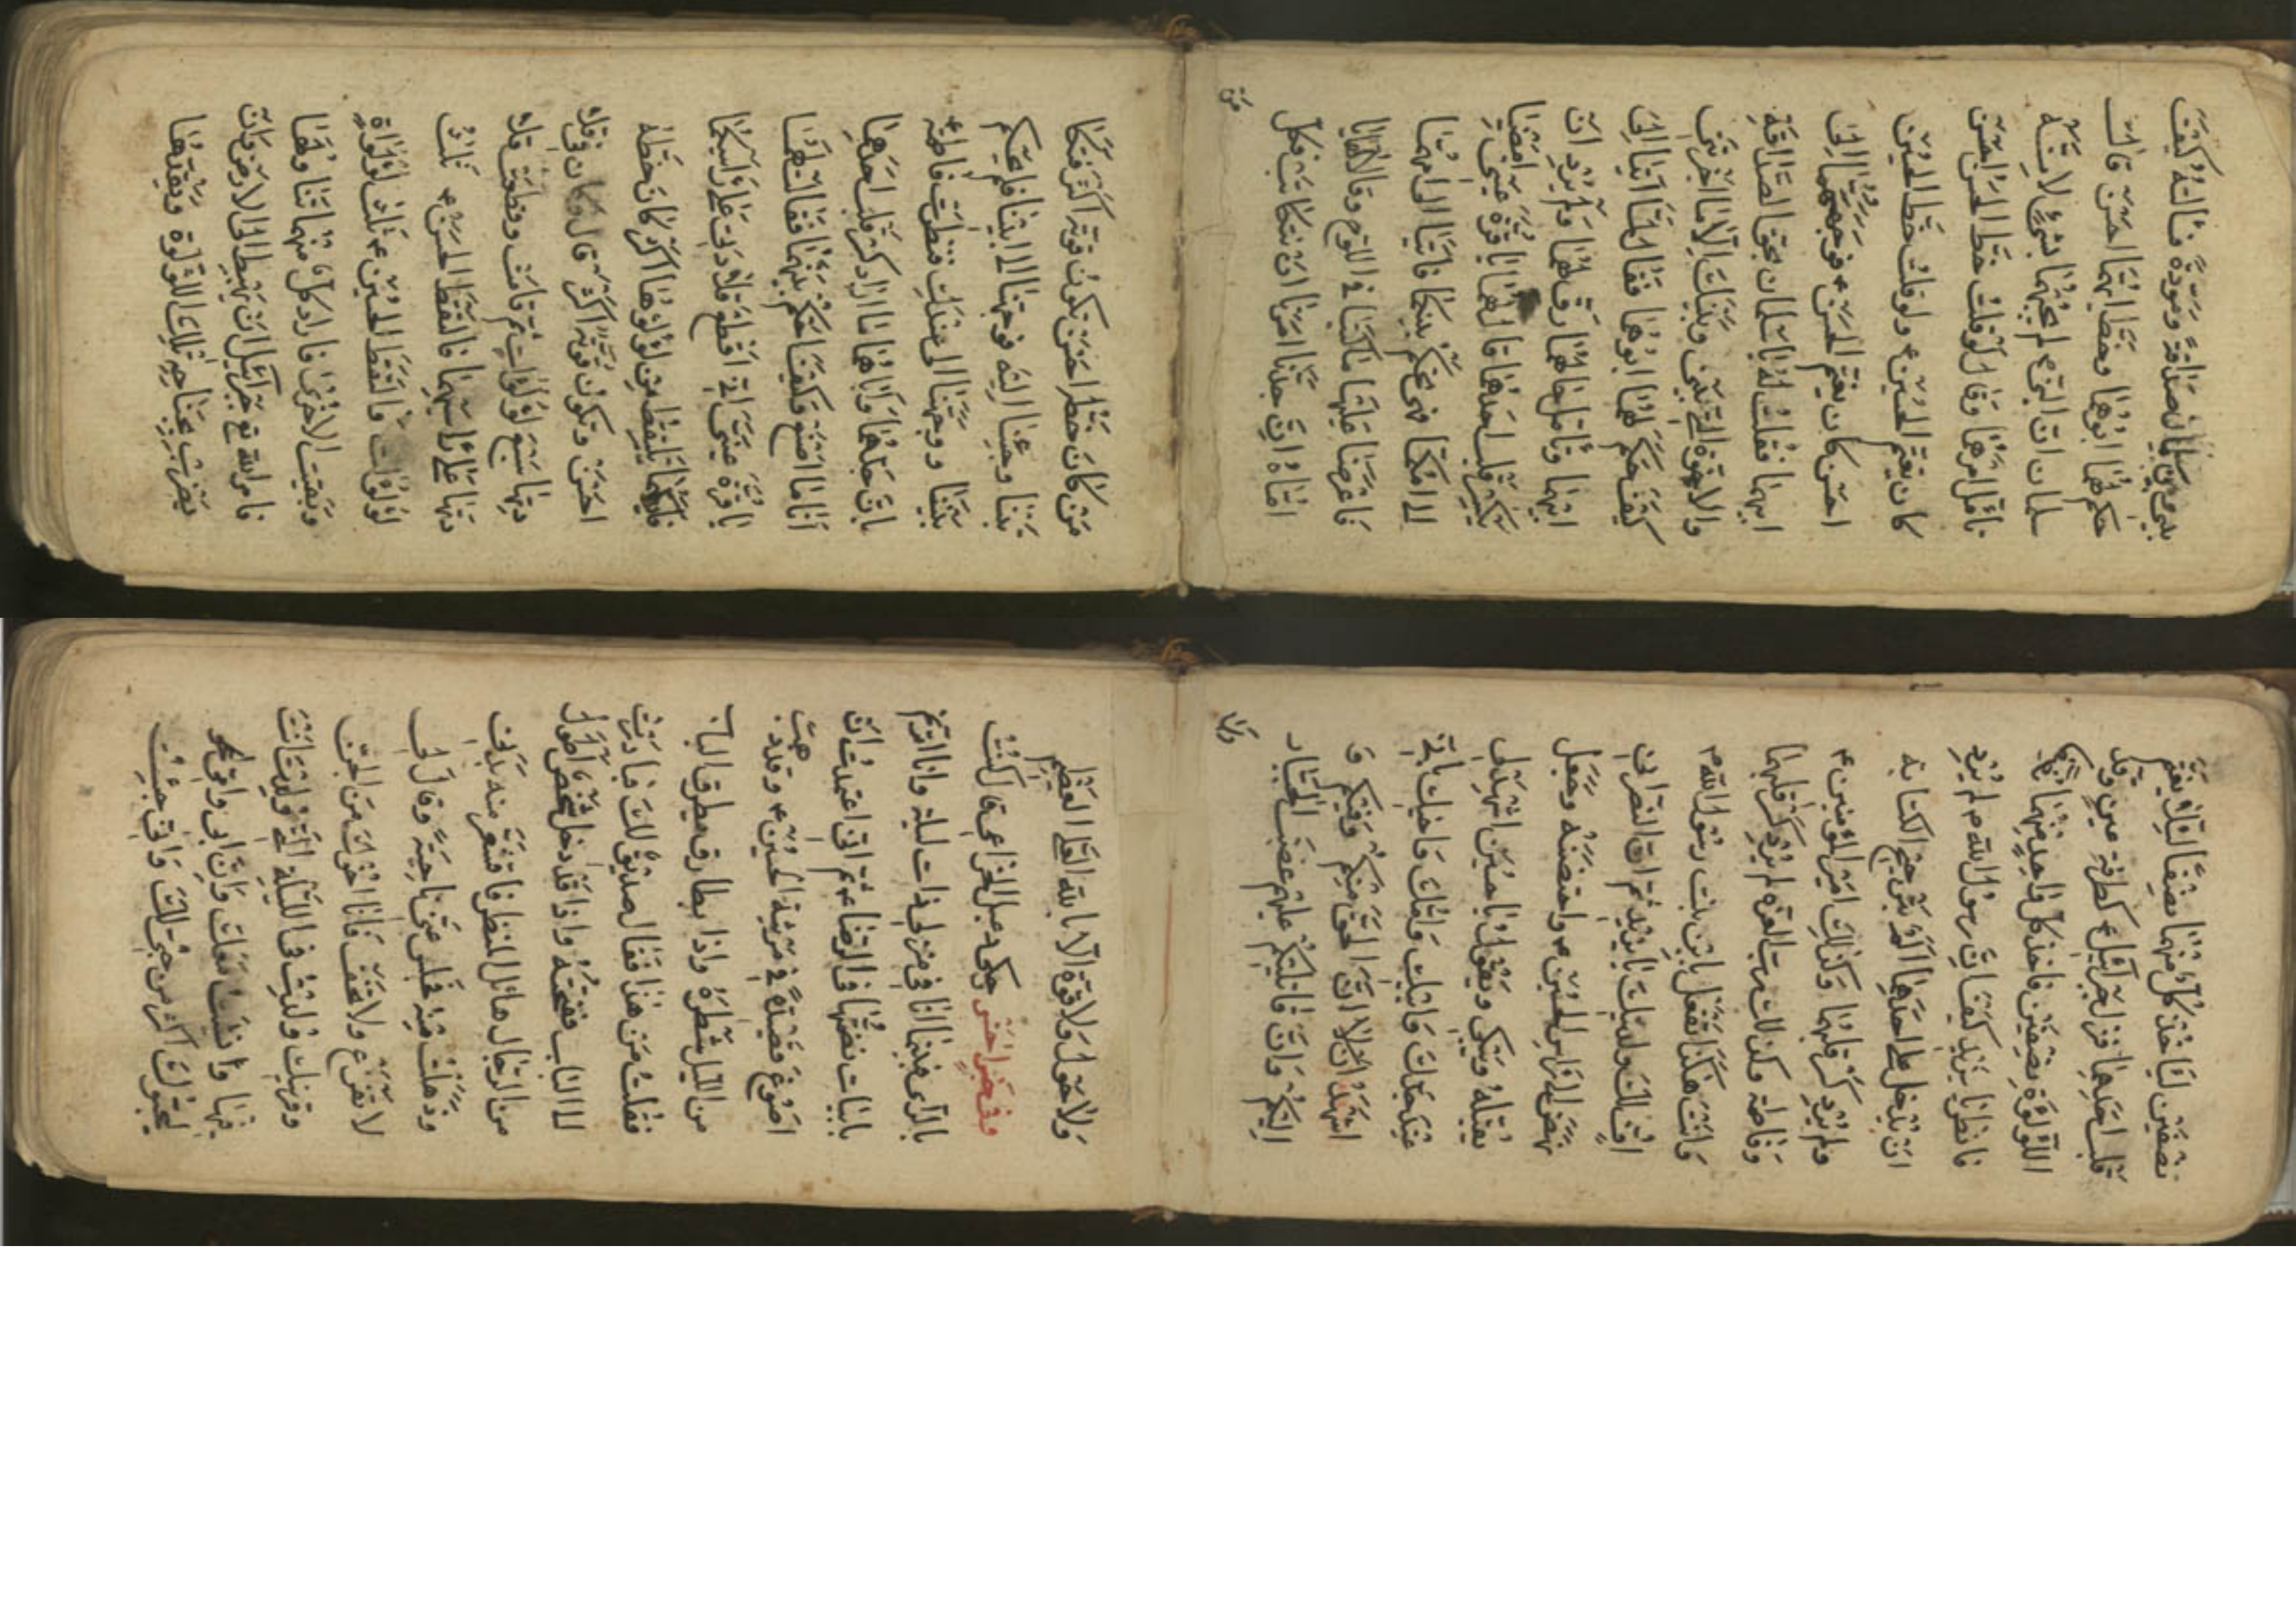 بيني وبين سلمان صداقة ومودة فسالته كيف
حكم لهما ابوهما وخط ايهما احسن قالت
سلمان ان النبي لم يجبهما بشئ لانه
تامل امرهما وقال لو قلت خط الحسن احسن
كان يغتم الحسين ع ولو قلت خط الحسين
احسن كان يغتم الحسن ع فوجههما الى
ابيهما فقلت له يا سلمان بحق الصداقة
والاخوة التي بيني وبينك الا ما اخبرتني
كيف حكم لهما ابوهما فقال لما اتيا الى
ابيهما وتامل حالهما رق لهما ولم يرد ان
يكسر قلب احدهما قال لهما يا قرة عيني امضيا
الى امكما فهي تحكم بينكما فاتيا الى امهما
فاعرضا عليها ما كتبا في اللوح وقالا يا
اماه ان جدنا امرنا ان نتكاتب فكل
من
من كان خطه احسن تكون قوته اكثر فتكا
تبنا وجئنا اليه فوجهنا الى ابينا فلم يحكم
بيننا ووجهنا الى عندك فتفكرت فاطمة ع
بان جدهما واباهما ما ارادا كسر قلب احدهما
انا ما اصنع وكيف احكم بينهما فقالت لهما
يا قرة عيني اني اقطع قلادتي على راسكما
فايكما يلتقط من لؤلؤها اكثر كان خطه
احسن وتكون قوته اكثر قال وكان في قلا
دتها سبع لؤلؤات ثم قامت وقطعت قلا
دتها على راسيهما فالتقط الحسن ع ثلث
لؤلؤات والتقط الحسين ع ثلث لؤلؤات
وبقيت الاخرى فاراد كل منهما تناولها
فامر الله تع جبرئيل ان يهبط الى الارض وان
يضرب بجناحه تلك اللؤلؤة ويقدها
نصفين لياخذ كل منهما نصفا لئلا يغتم
قلب احدهما فنزل جبرئيل ع كطرفة عين وقد
اللؤلؤة نصفين فاخذ كل واحد منهما
فانظر يا يزيد كيف ان رسول الله ص لم يرد
ان يدخل على احدهما الم ترجيح الكتابة
ولم يرد كسر قلبهما وكذلك امير المؤمنين ع
وفاطمة وكذلك رب العزة لم يرد كسر قلبهما
وانت هكذا تفعل بابن بنت رسول الله ص
اف لك ولدينك يا يزيد ثم ان النصراني
نهض الى راس الحسين ع واحتضنه وجعل
يقبله ويبكي ويقول يا حسين اشهد لي
عند جدك وابيك وامك واخيك باني
اشهد ان لا ان الحق منكم وفيكم و
اليكم وان قاتليكم عليهم غضب الجبار
ولا
ولا حول ولا قوة الا بالله العلي العظيم
وفي خبر اخر حكي دعبل الخزاعي قال كنت
بالري فبينا انا في منزلي ذات ليلة وانا اترنم
بابيات نعتها في الرضا ع ثم اني اعتمدت ان
اصوغ قصيدة في مرثية الحسين ع وقد ذهب
من الليل شطره واذا بطارق يطرق الباب
فقلت من هذا فقال لصديق لك فبادرت
الى الباب ففتحته واذا قد دخل شخص اطول
من الرجال هائل المنظر فاقشعر منه بدني
وذهلت منه فجلس عني ناحية وقال لي
لا تفزع ولا تخف فانا اخوك من الجن
وقرينك ولدت في الليلة التي ولدت انت
فيها وانشات معك وان ابي واخي نحو
يحبونك اكثر من حبي لك واني جئت